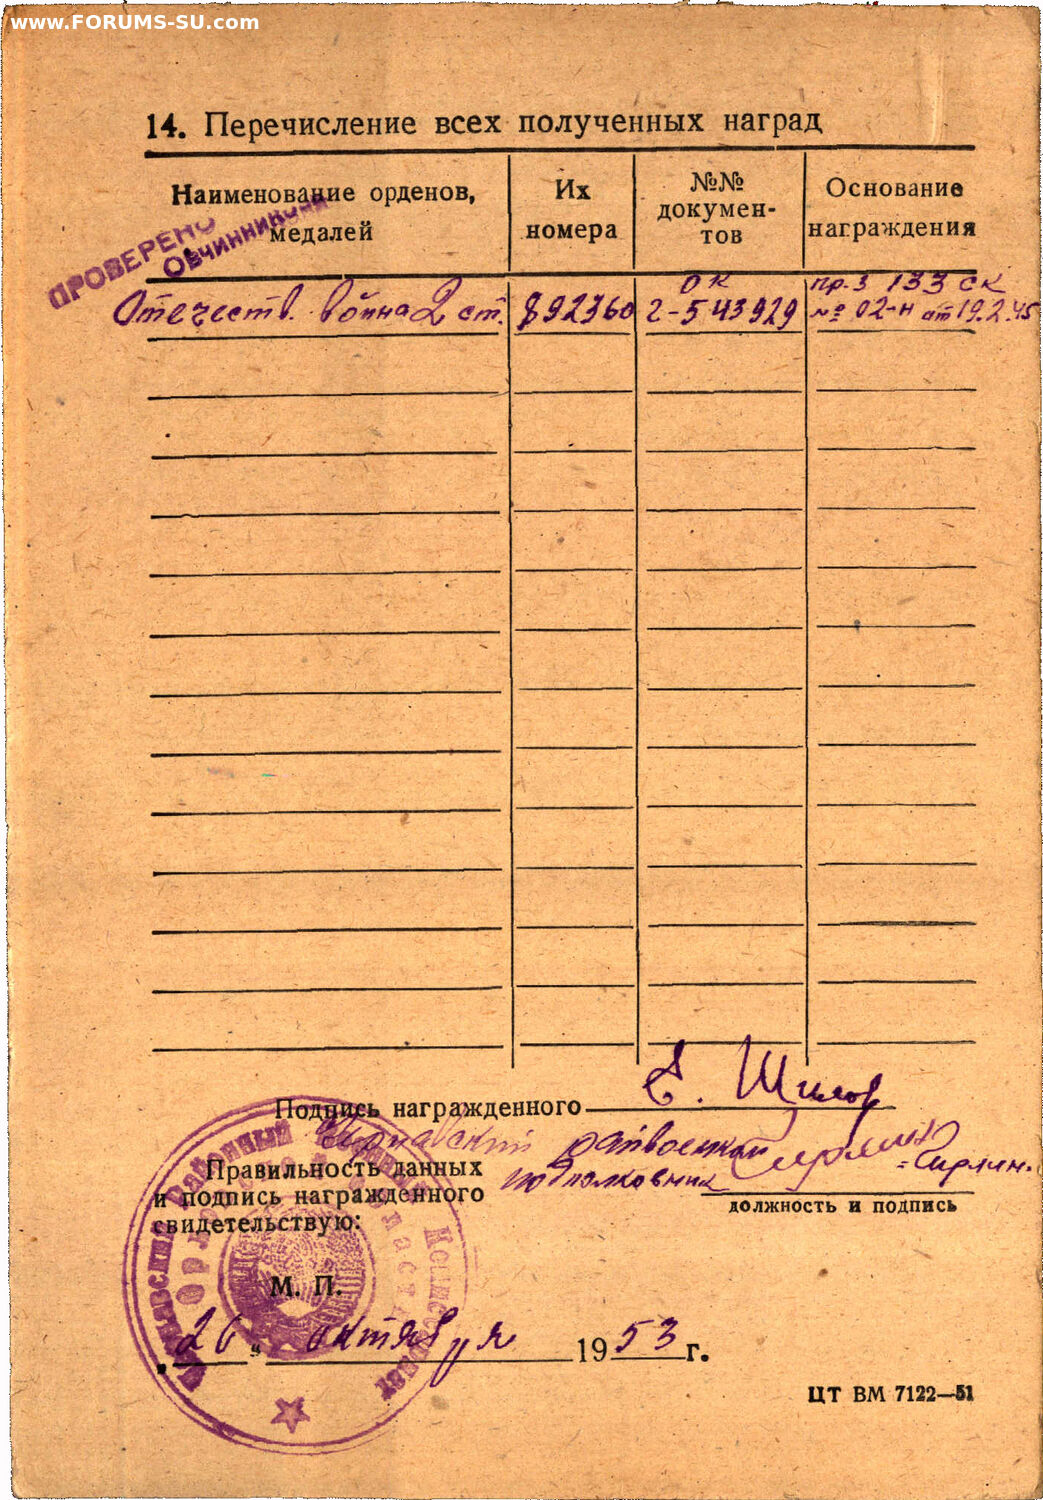 www.FORUMS-SU.com
14. Перечисление всех полученных наград
Наименование орденов, медалей
Их номера
№№ документов
Основание награждения
ПРОВЕРЕНО
Овчинникова
Отечеств. война 2 ст. 892360 ОК Г-543929 пр-з 133 СК № 02-н от 19.2.45
Подпись награжденного Шилов
райвоенком
Правильность данных
и подпись награжденного
свидетельствую:
подполковник
должность и подпись
Районный Военный Комиссариат
Орловской области
М. П.
„26" октября 1953 г.
ЦТ ВМ 7122—51